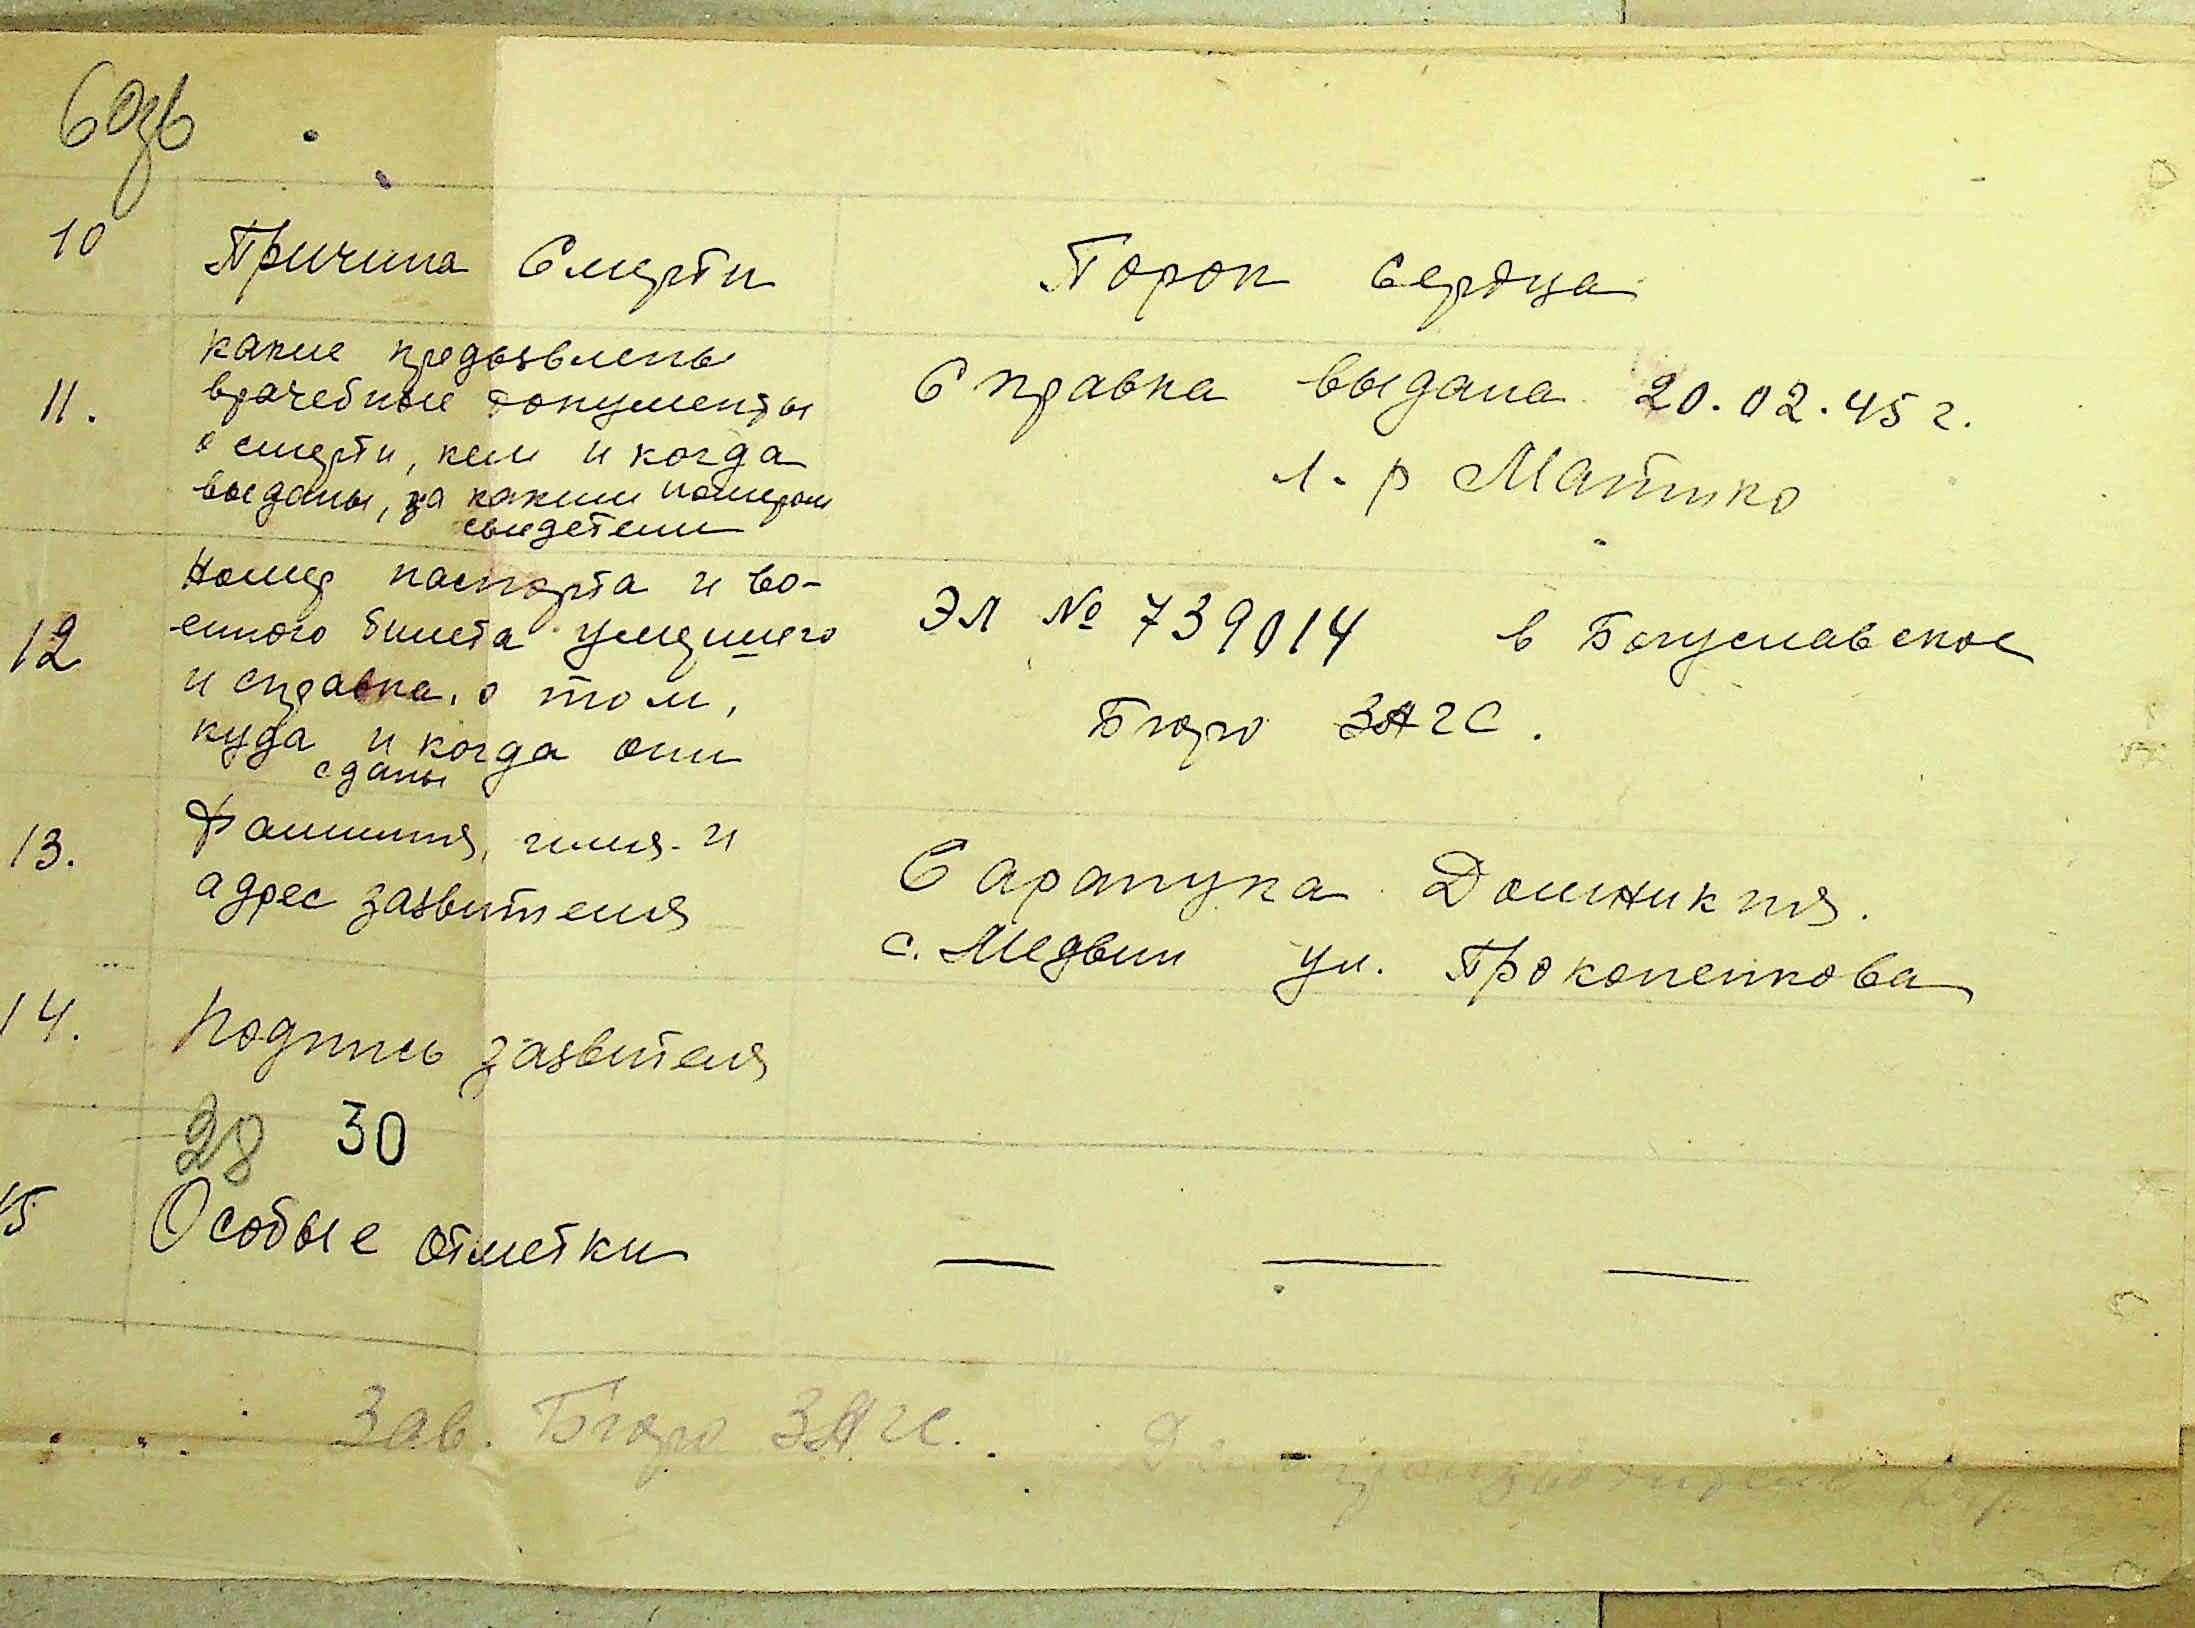 60зв
10 Причина Смерти Порок сердца
какие предъявлены
11. врачебные документы Справка выдана 20.02.45 г.
о смерти, кем и когда л-р Матишко
выданы, за каким номером
свидетели
Номер паспорта и во-
12 енного билета умершего ЭЛ № 739014 в Богуславское
и справка, о том, Бюро ЗАГС.
куда и когда они
сданы
13. Фамилия, имя и Сарапука Домникия.
адрес заявителя с. Медвин ул. Прокопенкова
14. Подпись заявителя
28 30
15 Особые отметки — — —
Зав. Бюро ЗАГС.